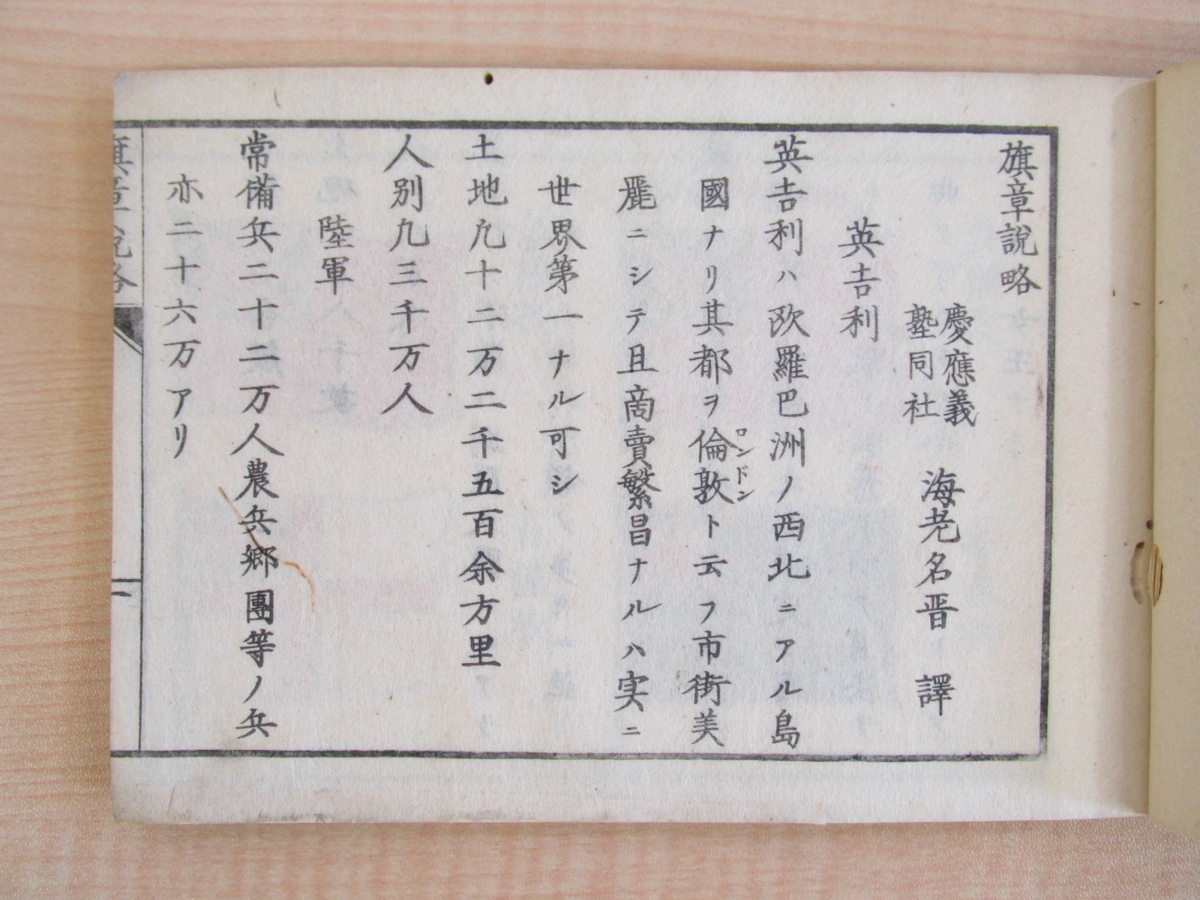 旗章説略
慶應義
塾同社
海老名晋 譯
英吉利
英吉利ハ欧羅巴洲ノ西北ニアル島
國ナリ其都ヲ倫敦ト云フ市街美
ロンドン
麗ニシテ且商賣繁昌ナルハ実ニ
世界第一ナル可シ
土地凢十二万二千五百余方里
人別凢三千万人
陸軍
常備兵二十二万人農兵郷團等ノ兵
亦二十六万アリ
旗章説略
一